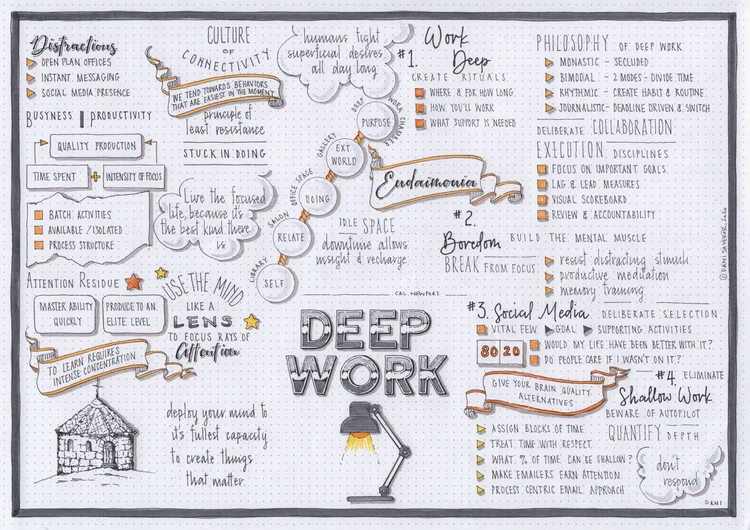 Distractions
OPEN PLAN OFFICES
INSTANT MESSAGING
SOCIAL MEDIA PRESENCE
BUSYNESS | PRODUCTIVITY
QUALITY PRODUCTION
TIME SPENT + INTENSITY OF FOCUS
BATCH ACTIVITIES
AVAILABLE / ISOLATED
PROCESS STRUCTURE
ATTENTION RESIDUE
MASTER ABILITY
QUICKLY
PRODUCE TO AN
ELITE LEVEL
TO LEARN REQUIRES
INTENSE CONCENTRATION
CULTURE
OF
CONNECTIVITY
WE TEND TOWARDS BEHAVIORS
THAT ARE EASIEST IN THE MOMENT
principle of
least resistance
STUCK IN DOING
Live the focused
life, because it's
the best kind there
is
USE THE MIND
LIKE A
LENS
TO FOCUS RAYS OF
Attention
deploy your mind to
it's fullest capacity
to create things
that matter.
humans fight
superficial desires
all day long
DEEP WORK CHAMBER
PURPOSE
GALLERY
EXT
WORLD
OFFICE SPACE
DOING
SALON
RELATE
LIBRARY
SELF
Eudaimonia
IDLE SPACE
downtime allows
insight & recharge
CAL NEWPORT
DEEP
WORK
#1. Work
Deep
CREATE RITUALS
WHERE & FOR HOW LONG
HOW YOU'LL WORK
WHAT SUPPORT IS NEEDED
PHILOSOPHY OF DEEP WORK
MONASTIC - SECLUDED
BIMODAL - 2 MODES - DIVIDE TIME
RHYTHMIC - CREATE HABIT & ROUTINE
JOURNALISTIC - DEADLINE DRIVEN & SWITCH
DELIBERATE COLLABORATION
EXECUTION DISCIPLINES
FOCUS ON IMPORTANT GOALS
LAG & LEAD MEASURES
VISUAL SCOREBOARD
REVIEW & ACCOUNTABILITY
#2.
Boredom BUILD THE MENTAL MUSCLE
BREAK FROM FOCUS
resist distracting stimuli
productive meditation
memory training
#3. Social Media DELIBERATE SELECTION
VITAL FEW GOAL SUPPORTING ACTIVITIES
80 20
WOULD MY LIFE HAVE BEEN BETTER WITH IT?
DO PEOPLE CARE IF I WASN'T ON IT?
GIVE YOUR BRAIN QUALITY
ALTERNATIVES
#4. ELIMINATE
Shallow Work
BEWARE OF AUTOPILOT
QUANTIFY DEPTH
ASSIGN BLOCKS OF TIME
TREAT TIME WITH RESPECT
WHAT % OF TIME CAN BE SHALLOW?
MAKE EMAILERS EARN ATTENTION
PROCESS CENTRIC EMAIL APPROACH
don't
respond
DANI